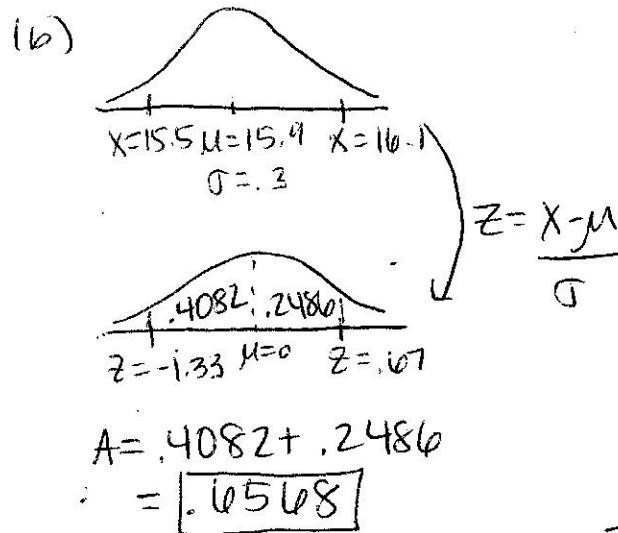 (6)
X=15.5 μ=15.9 X=16.1
σ=.3
Z= X-μ
σ
.4082 .2486
Z=-1.33 μ=0 Z=.67
A= .4082+ .2486
= .6568